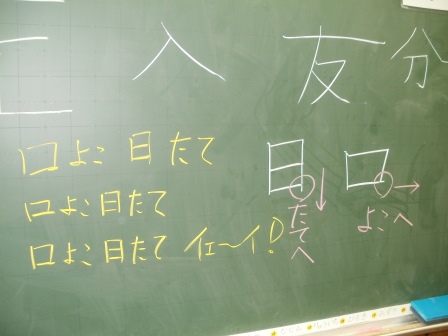 工 入 友 分
口よこ 日たて
口よこ 日たて
口よこ 日たて イェ〜イ!
日 口
たてへ
よこへ